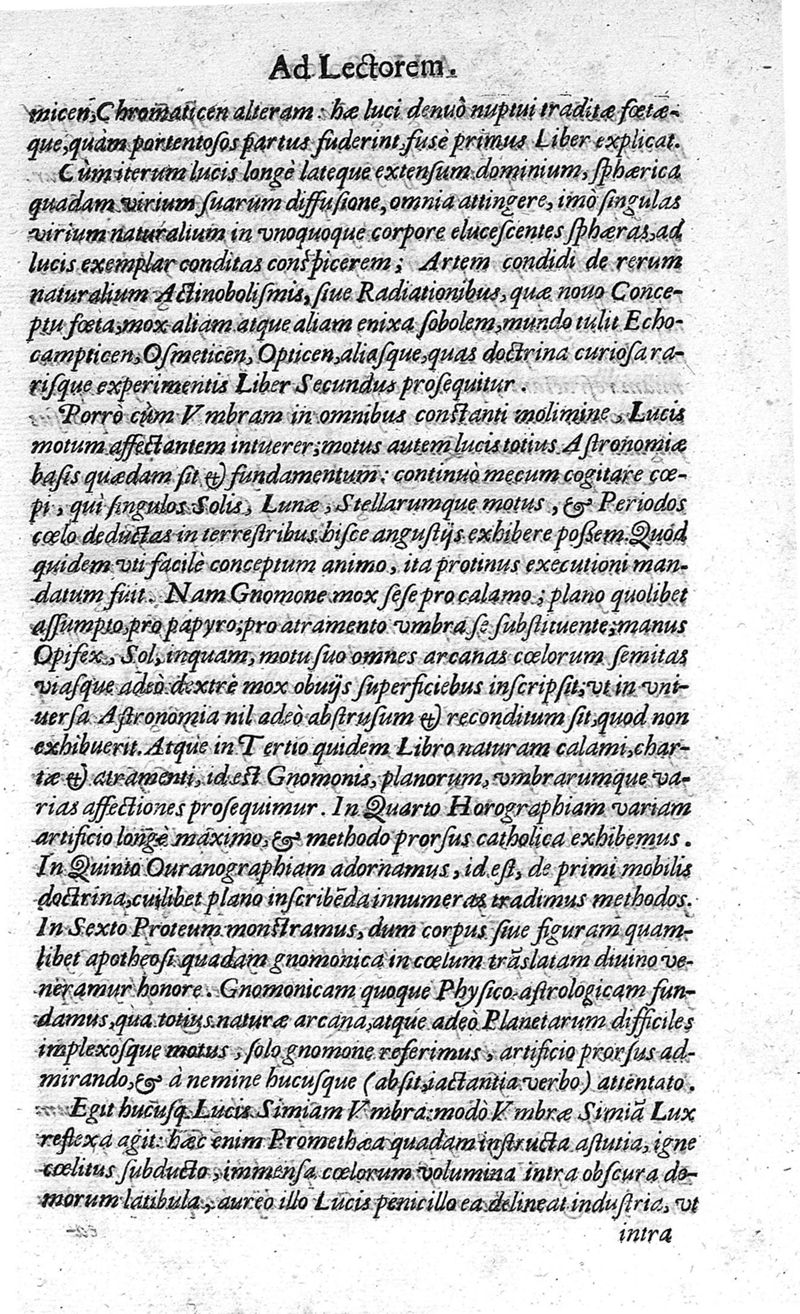 Ad Lectorem.
micen, Chromaticen alteram: hæ luci denuò nuptui traditæ fœtæ-
que, quàm portentosos partus fuderint, fusè primus Liber explicat.
Cùm iterum lucis longè lateque extensum dominium, sphærica
quadam virium suarum diffusione, omnia attingere, imò singulas
virium naturalium in vnoquoque corpore elucescentes sphæras, ad
lucis exemplar conditas conspicerem; Artem condidi de rerum
naturalium Actinobolismis, siue Radiationibus, quæ nouo Conce-
ptu fœta, mox aliam atque aliam enixa sobolem, mundo tulit Echo-
campticen, Osmeticen, Opticen, aliasque, quas doctrina curiosa ra-
risque experimentis Liber Secundus prosequitur.
Porrò cùm Vmbram in omnibus constanti molimine, Lucis
motum affectantem intuerer; motus autem lucis totius Astronomiæ
basis quædam sit & fundamentum: continuò mecum cogitare cœ-
pi, quì singulos Solis, Lunæ, Stellarumque motus, & Periodos
cœlo deductas in terrestribus hisce angustijs exhibere possem. Quod
quidem vti facilè conceptum animo, ita protinus executioni man-
datum fuit. Nam Gnomone mox sese pro calamo; plano quolibet
assumpto, pro papyro; pro atramento vmbra se substituente; manus
Opifex, Sol, inquam, motu suo omnes arcanas cœlorum semitas
viasque adeò dextrè mox obuijs superficiebus inscripsit; vt in vni-
uersa Astronomia nil adeò abstrusum & reconditum sit, quod non
exhibuerit. Atque in Tertio quidem Libro naturam calami, char-
tæ & atramenti, id est Gnomonis, planorum, vmbrarumque va-
rias affectiones prosequimur. In Quarto Horographiam variam
artificio longè maximo, & methodo prorsus catholica exhibemus.
In Quinto Ouranographiam adornamus, id est, de primi mobilis
doctrina, cuilibet plano inscribẽda innumeras tradimus methodos.
In Sexto Proteum monstramus, dum corpus siue figuram quam-
libet apotheosi quadam gnomonica in cœlum trãslatam diuino ve-
neramur honore. Gnomonicam quoque Physico-astrologicam fun-
damus, qua totius naturæ arcana, atque adeò Planetarum difficiles
implexosque motus, solo gnomone referimus, artificio prorsus ad-
mirando, & à nemine hucusque (absit iactantia verbo) attentato.
Egit hucusq. Lucis Simiam Vmbra: modò Vmbræ Simiã Lux
reflexa agit: hæc enim Promethæa quadam instructa astutia, igne
cœlitus subducto, immensa cœlorum volumina intra obscura do-
morum latibula, aureo illo Lucis penicillo ea delineat industria, vt
intra